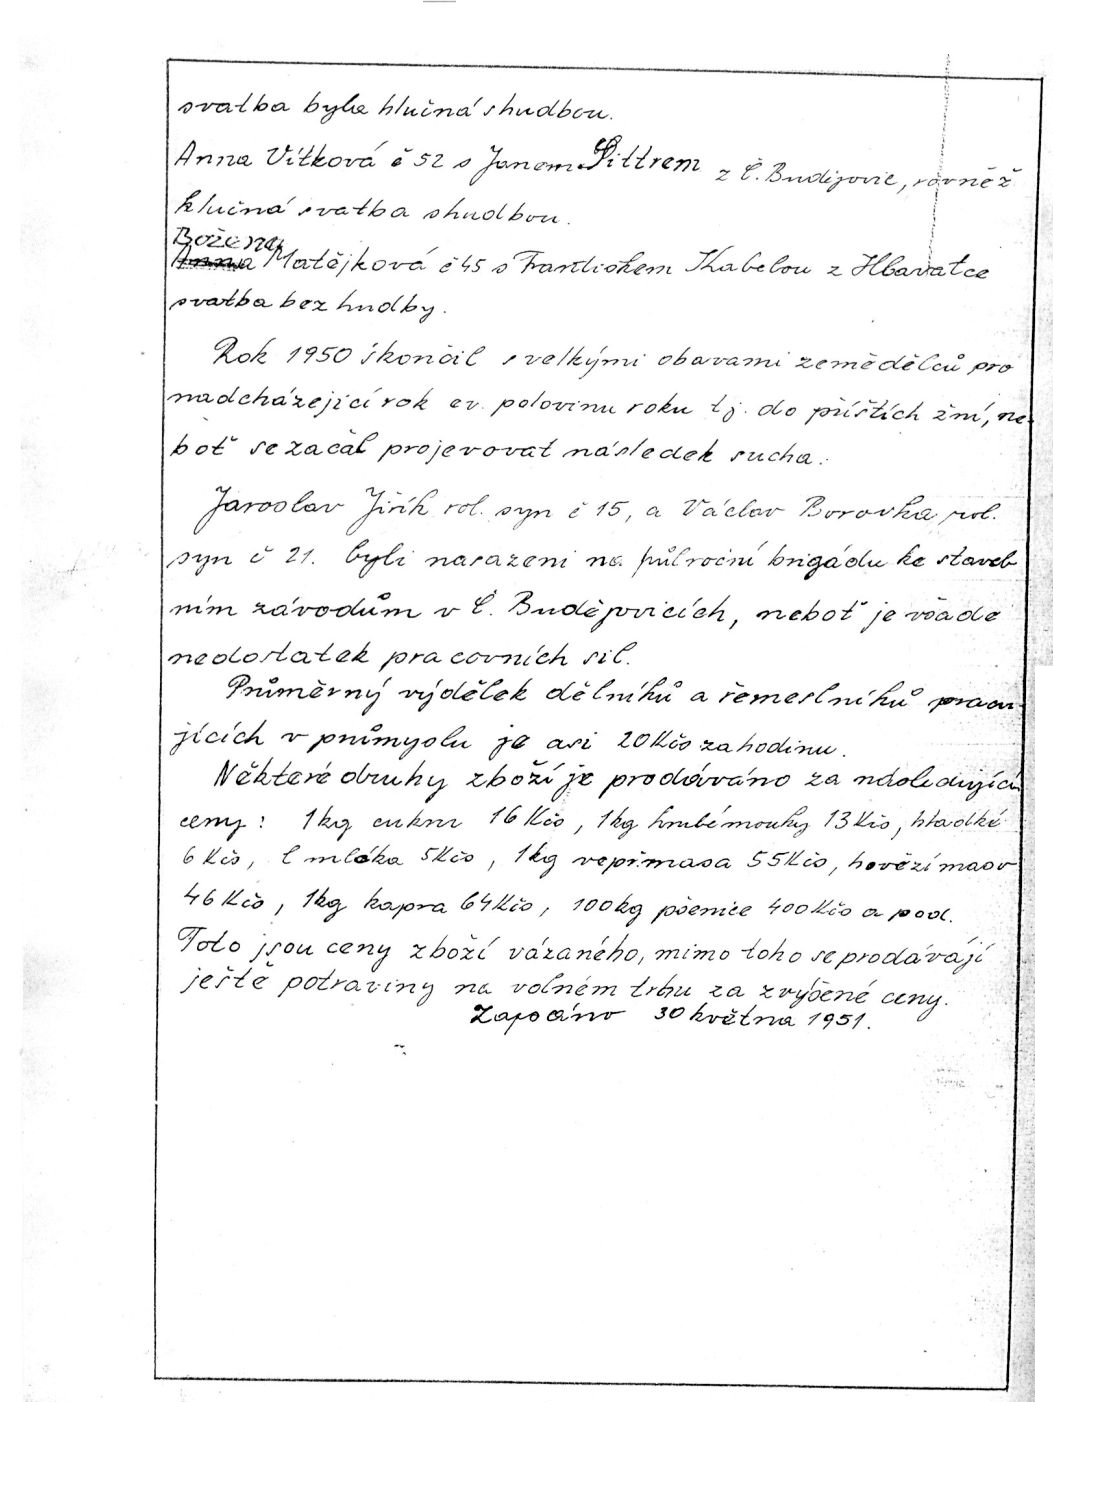 svatba byla hlučná s hudbou.
Anna Vítková č 52 s Janem Pittrem z Č. Budějovic, rovněž
hlučná svatba s hudbou.
Božena
Anna Matějková č 45 s Františkem Kabelou z Hlavatce
svatba bez hudby.
Rok 1950 skončil s velkými obavami zemědělců pro
nadcházející rok ev. polovinu roku tj. do příštích žní, ne-
boť se začal projevovat následek sucha.
Jaroslav Jiřík rol. syn č 15, a Václav Borovka rol.
syn č 21. byli nasazeni na půlroční brigádu ke staveb
ním závodům v Č. Budějovicích, neboť je všade
nedostatek pracovních sil.
Průměrný výdělek dělníků a řemeslníků pracu-
jících v průmyslu je asi 20 Kčs za hodinu.
Některé druhy zboží je prodáváno za následující
ceny: 1 kg cukru 16 Kčs, 1kg hrubé mouky 13 Kčs, hladké
6 Kčs, l mléka 5 Kčs, 1 kg vepř. masa 55 Kčs, hovězí maso
46 Kčs, 1kg kapra 64 Kčs, 100 kg pšenice 400 Kčs a pod.
Toto jsou ceny zboží vázaného, mimo toho se prodávájí
ještě potraviny na volném trhu za zvýšené ceny.
Zapsáno 30 května 1951.